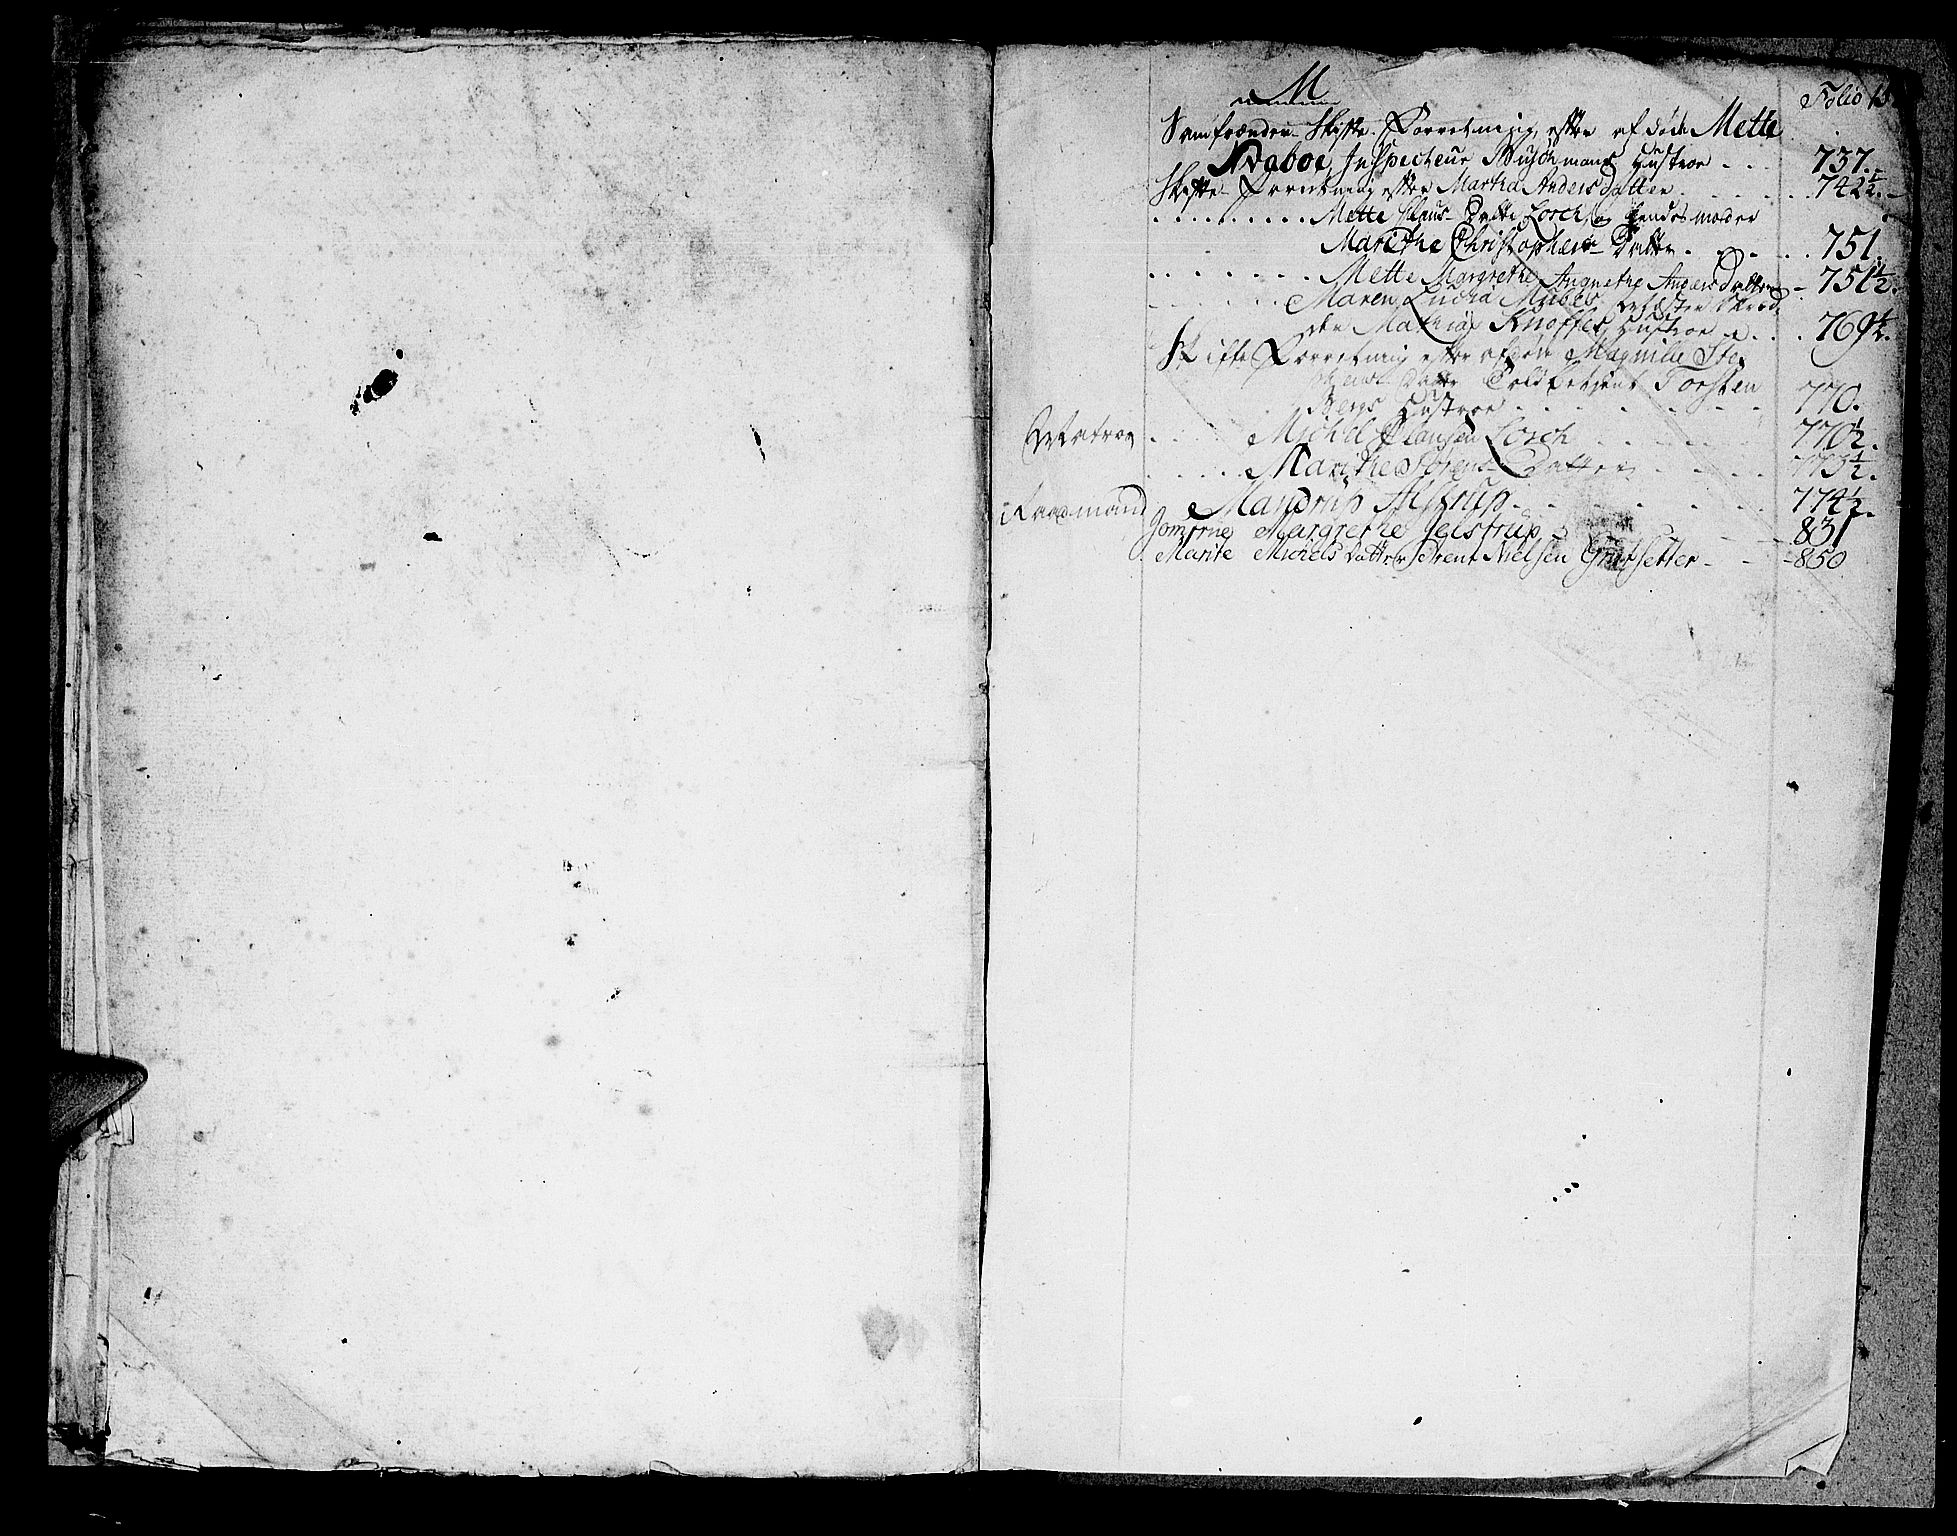 M
Folio 15
Samfrænder Skifte Forretning efter afdøde Mette
Svaboe, Inspecteur Buschmans Hustroe - - - 737.
Skifte Forretning efter Martha Anders datter . . . . 742½.
. . . . . . . . . . Mette Claus Datter Lorch, og hendes moder
Marithe Christophers Datter . . . . . 751.
. . . . . . . Mette Margrethe Angnethe Anders datter - 751½.
Maren Lucia
der Mathias Knoffs Hustroe . . . 769½.
Skifte Forretning efter afdøde Magnille Ste
phens Datter Toldbetjent Torsten
Bergs Hustroe . . . . . . . 770.
. . . . Michel Clausen Lorch . . . . . 770½.
. . . . . Marithe Sørens Datter . . . . 773½.
Raadmand Mandrup Alstrup . . . . . . 774½.
Jomfrue Margrethe Jelstrup - - - 831
Marite Michels datter Arent Nielsen Gritsetter - - - 850